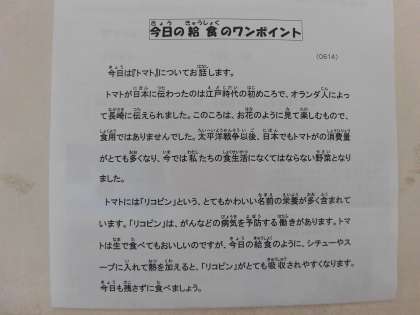 今日の給食のワンポイント
(0614)
今日は『トマト』についてお話します。
トマトが日本に伝わったのは江戸時代の初のころで、オランダ人によっ
て長崎に伝えられました。このころは、お花のように見て楽しむもので、
食用ではありませんでした。太平洋戦争以後、日本でもトマトがの消費量
がとても多くなり、今では私たちの食生活になくてはならない野菜となり
ました。
トマトには「リコピン」という、とてもかわいい名前の栄養が多く含まれて
います。「リコピン」は、がんなどの病気を予防する働きがあります。トマ
トは生で食べてもおいしいのですが、今日の給食のように、シチューやス
ープに入れて熱を加えると、「リコピン」がとても吸収されやすくなります。
今日も残さずに食べましょう。